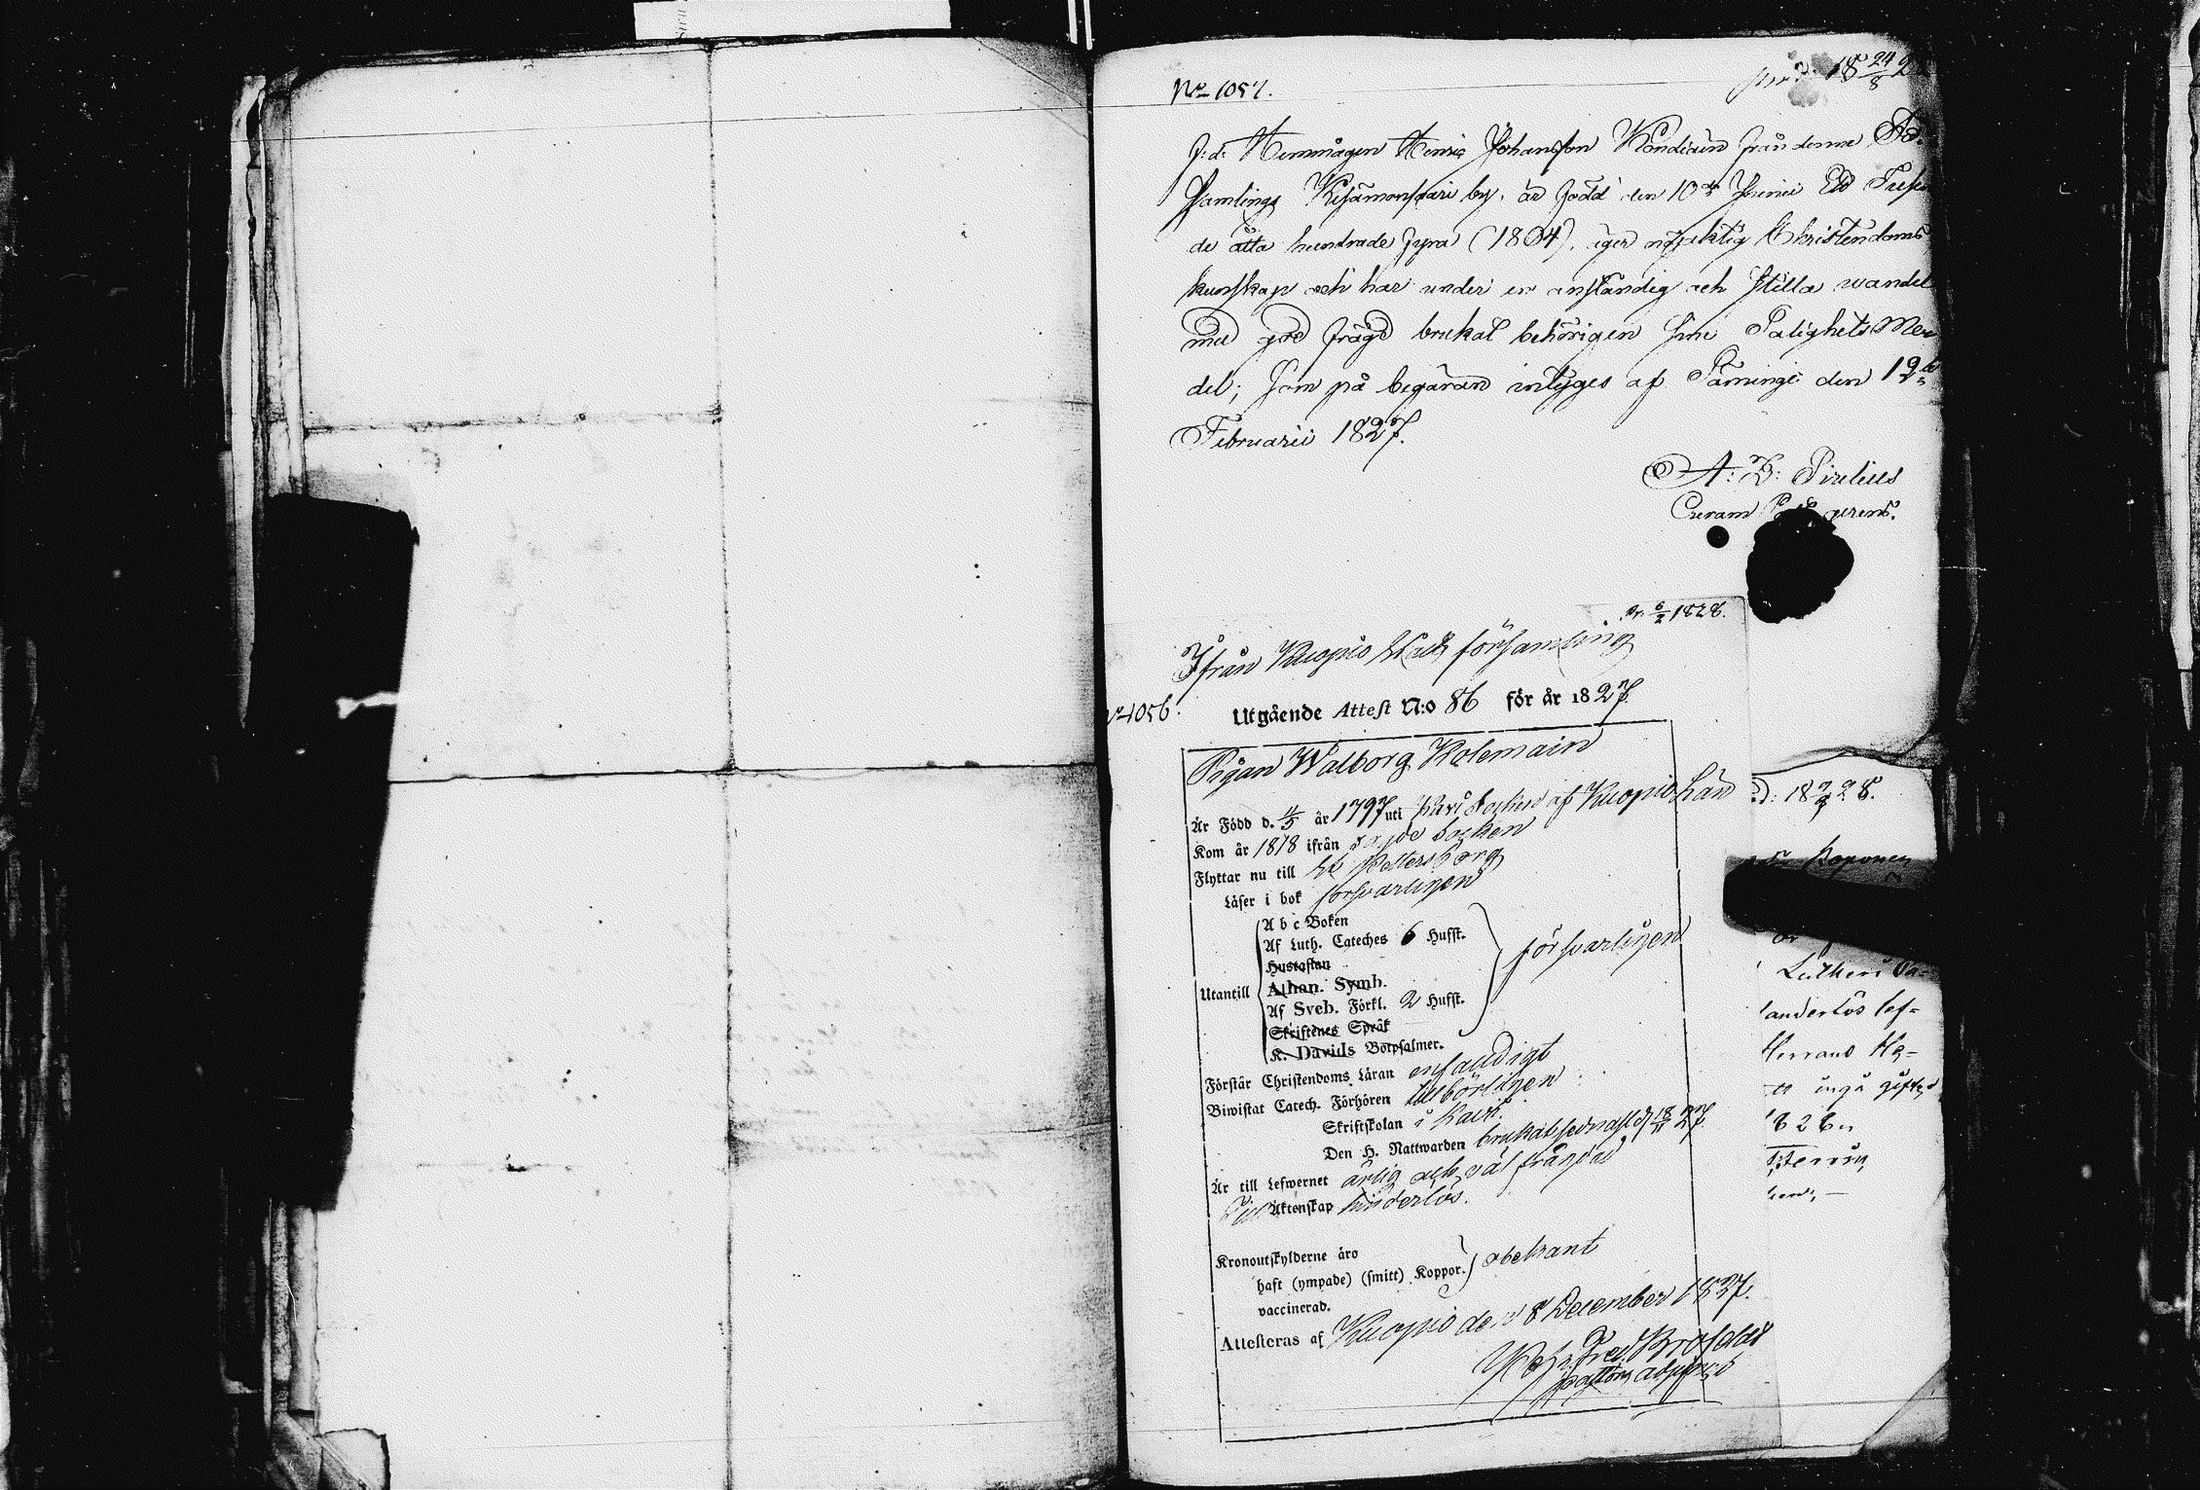 No 1057.
18 24/8 2
f:d. Hemmågen Henric Johansson Kondiain från denne För-
samlings Kesämonsaari by, är född den 10de Junii Ett Tusen
de åtta hundrade fyra (1804), äger nöjaktig Christendoms
kunskap och har under en anständig och stilla wandel
med god frägd brukat behörigen sine Salighets Me
del; som på begäran intygas af Säminge den 12te
Februarii 1827.
A: D: Pirelius
Curam gerens.
Pr. 6/2 1828.
Ifrån Kuopio Stads församling
No 1056.
Utgående Attest N:o 86 för år 1827.
Pigan Walborg Kolemain
Är Född d. 11/5 år 1797 uti Kavi Socken af Kuopio Län
Kom år 1818 ifrån Socken
Flyttar nu till St Pettersborg
Läser i bok försvarligen
A b c Boken
Af Luth. Cateches 6 Hufst.
Hustaflan
försvarligen
Utantill
Athan. Symb.
Af Sveb. Förkl. 2 Hufst.
Skriftenes Språk
K. Davids Botpsalmer.
Förstår Christendoms Läran enfaldigt
Biwistat Catech. Förhören tillbörligen
Skriftskolan i Kavi.
Den H. Nattwarden brukat sednast d. 18/11 27.
Är till Lefwernet ärlig och väl frägdad
Till Äktenskap hinderlös.
Kronoutskylderne äro
haft (ympade) (smitt) Koppor. obekant
vaccinerad.
Attesteras af Kuopio den 8 December 1827.
Joh. Fred. Brofeldt
pastors adjunct
d: 18 28.
Koponen
Lutheri Ca-
anderlös lef-
Herrans He-
tt ingå gifte
1828.